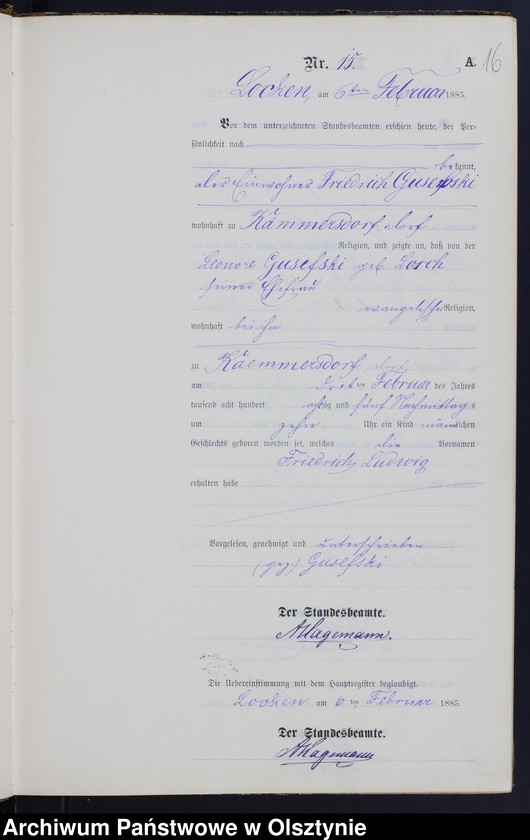 16
Nr. 15. A.
Locken, am 6ten Februar 1885.
Vor dem unterzeichneten Standesbeamten erschien heute, der Per-
sönlichkeit nach
bekannt,
der Einwohner Friedrich Gusefski
wohnhaft zu Kämmersdorf, dorf
Religion, und zeigte an, daß von der
Leonore Gusefski geb. Lorch
seiner Ehefrau
evangelischer Religion,
wohnhaft bei ihm
zu Kaemmersdorf, dorf,
am dritten Februar des Jahres
tausend acht hundert achtzig und fünf Nachmittags
um zehn Uhr ein Kind männlichen
Geschlechts geboren worden sei, welches die Vornamen
Friedrich Ludwig
erhalten habe
Vorgelesen, genehmigt und unterschrieben
(gez.) Gusefski
Der Standesbeamte.
AHagemann.
Die Uebereinstimmung mit dem Hauptregister beglaubigt.
Locken am 6 ten Februar 1885.
Der Standesbeamte.
AHagemann
Archiwum Państwowe w Olsztynie